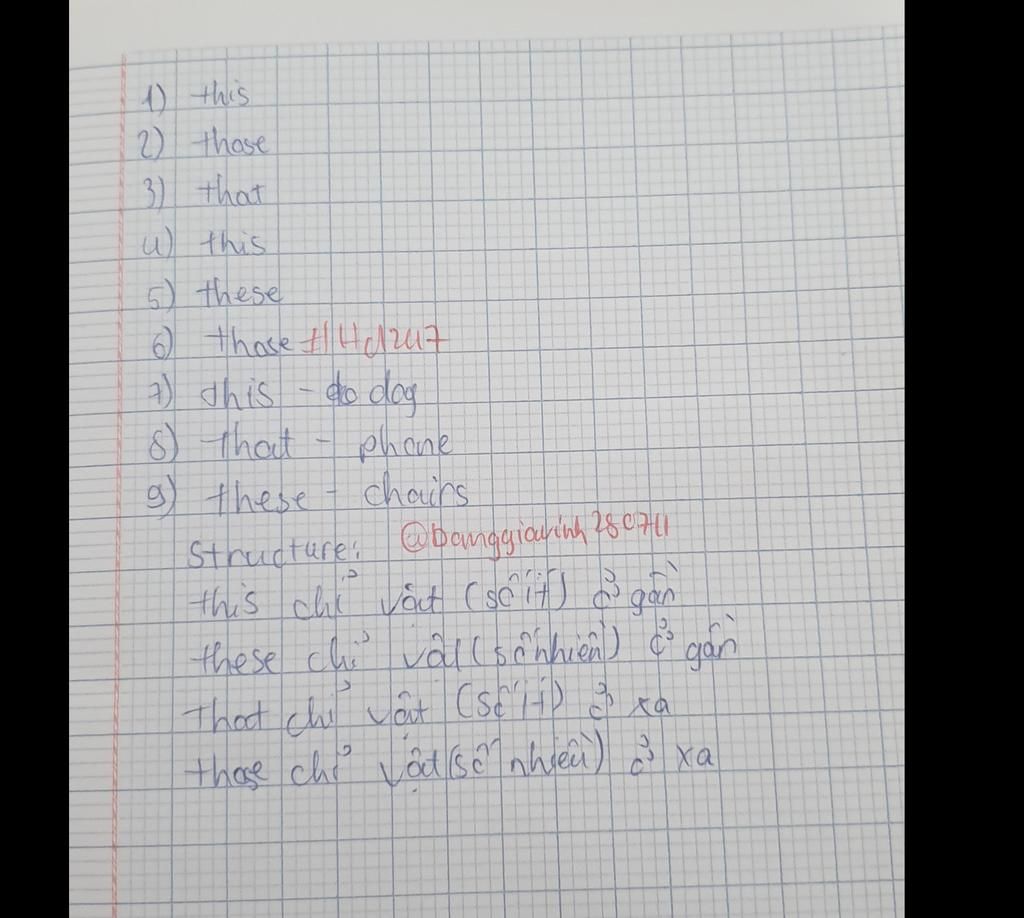 1) this
2) those
3) that
4) this
5) these
6) those
7) this - dog
8) that - phone
9) these - chairs
Structure:
this chỉ vật (số ít) ở gần
these chỉ vật (số nhiều) ở gần
that chỉ vật (số ít) ở xa
those chỉ vật (số nhiều) ở xa